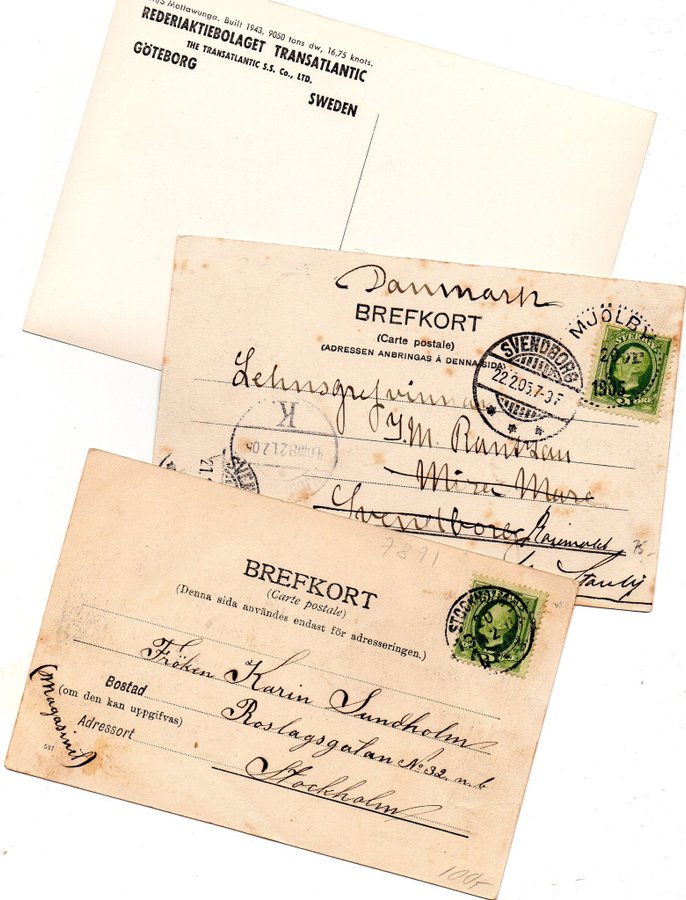 M/S Mattawunga. Built 1943, 9050 tons dw, 16,75 knots.
REDERIAKTIEBOLAGET TRANSATLANTIC
THE TRANSATLANTIC S.S. Co., LTD.
GÖTEBORG
SWEDEN
Danmark
BREFKORT
(Carte postale)
(ADRESSEN ANBRINGAS Å DENNA SIDA)
MJÖLBY
1905
SVENDBORG
22.2.05.7-9F
Lehnsgrefvinnan
I.M. Rantzau
Mirer Mare
Svendborg
K
75-
7891
BREFKORT
(Carte postale)
(Denna sida användes endast för adresseringen.)
STOCKHOLM
Fröken Karin Sundholm
Bostad
(om den kan uppgifvas)
Roslagsgatan No 32. n. b
Adressort
Stockholm
(Magasinet)
587
100:-